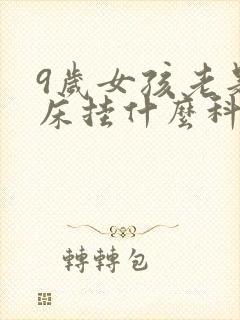 9歲女孩老是
床掛什麼科
轉轉包